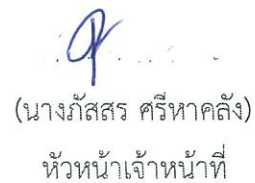 (นางภัสสร ศรีหาคลัง)
หัวหน้าเจ้าหน้าที่